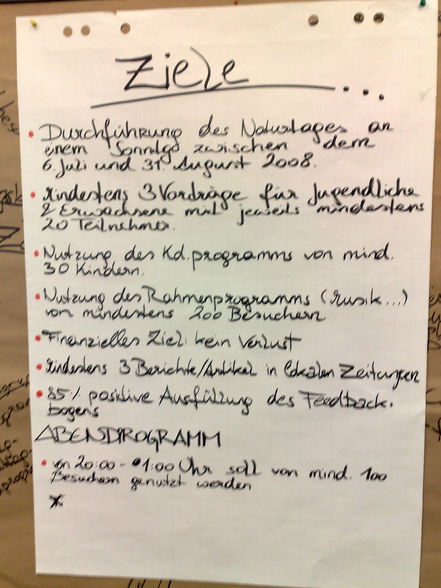 Ziele ...
• Durchführung des Naturtages an
einem Sonntag zwischen dem
6. Juli und 31. August 2008.
• Mindestens 3 Vorträge für Jugendliche
& Erwachsene mit jeweils mindestens
20 Teilnehmer.
• Nutzung des Kd.programms von mind.
30 Kindern.
• Nutzung des Rahmenprogramms (Musik...)
von mindestens 200 Besuchern
• Finanzielles Ziel: kein Verlust
• Mindestens 3 Berichte/Artikel in lokalen Zeitungen
• 85% positive Ausfüllung des Feedback-
bogens
ABENDPROGRAMM
• von 20:00 - 01:00 Uhr soll von mind. 100
Besuchern genutzt werden